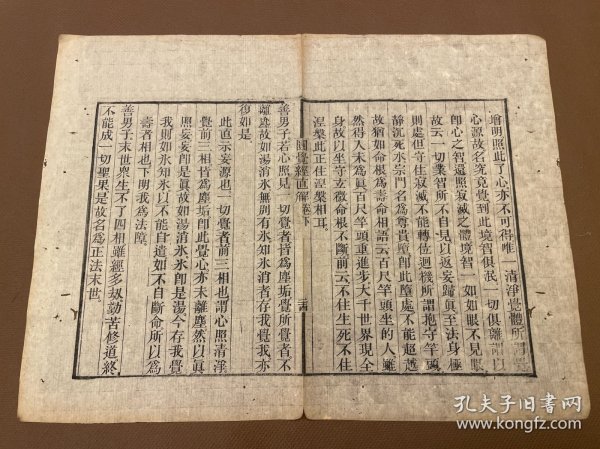 增明照此了心亦不可得唯一清淨覺體所謂覺
心源故名究竟覺到此境智俱泯一切俱離謂以
卽心之智還照寂滅之體境智一如如眼不見眼
故云一切業智所不自見以返妄歸眞至法身極
則處但守住寂滅不能轉位迴機所謂抱守竿頭
靜沉死水宗門名爲尊貴墮卽此墮處不能超越
故猶如命根爲壽命相語云百尺竿頭坐的人雖
然得入未爲眞百尺竿頭重進步大千世界現全
身故以坐守玄微命根不斷前云不住生死不住
涅槃此正住涅槃相耳
圓覺經直解卷下
善男子若心照見一切覺者皆爲塵垢覺所覺者不
離塵故如湯消氷無別有氷知氷消者存我覺我亦
復如是
此直示妄源也一切覺者前三相也謂心照清淨
覺前三相皆爲塵垢卽此覺心亦未離塵然以眞
照妄妄卽是眞故如湯消氷氷卽是湯今存我覺
我則如氷知氷以不能自遣如不自斷命所以爲
壽者相也下明我爲法障
善男子末世衆生不了四相雖經多劫勤苦修道終
不能成一切聖果是故名爲正法末世
孔夫子旧书网
www.kongfz.com